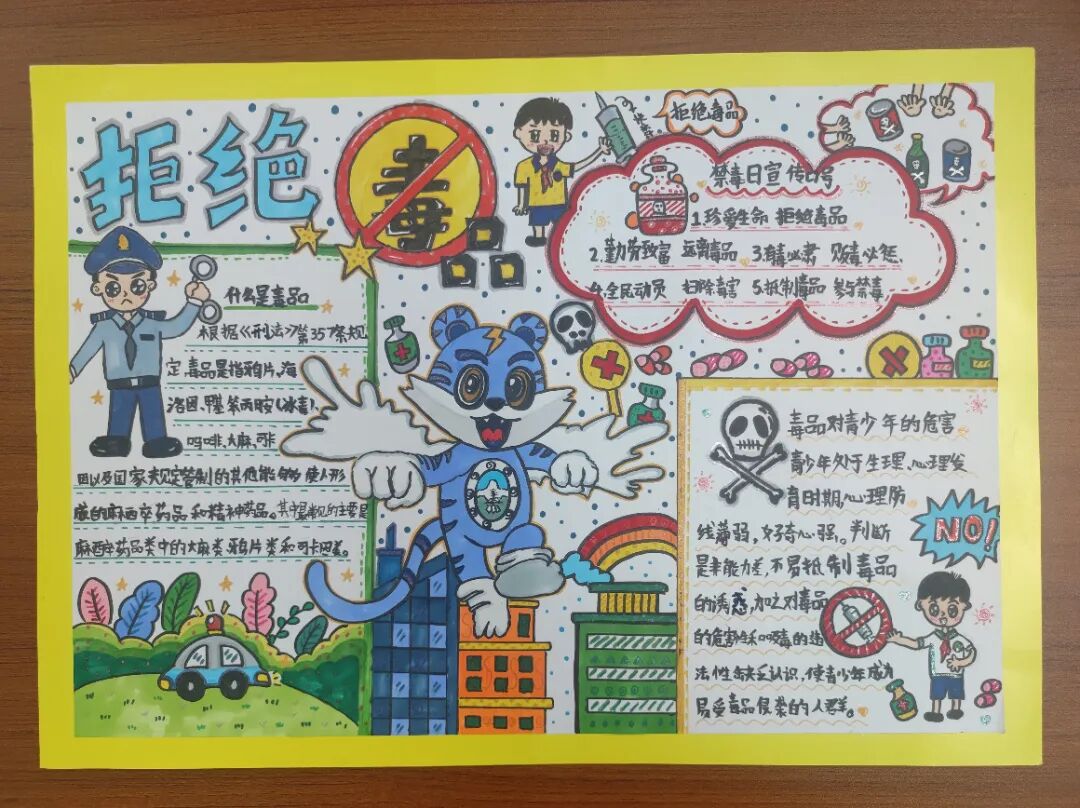 拒绝
毒品
什么是毒品
根据《刑法》第357条规
定,毒品是指鸦片,海
洛因,甲基苯丙胺(冰毒),
吗啡,大麻,可卡
因以及国家规定管制的其他能够使人形
成的麻醉药品和精神药品。其中最常见的主要是
麻醉药品类中的大麻类,鸦片类和可卡因类。
拒绝毒品
禁毒日宣传口号
1.珍爱生命 拒绝毒品
2.勤劳致富 远离毒品 3.有毒必肃 贩毒必惩.
4.全民动员 扫除毒害 5.抵制毒品 参与禁毒
毒品对青少年的危害
青少年处于生理、心理发
育时期,心理防
线薄弱,好奇心强。判断
是非能力差,不易抵制毒品
的诱惑,加之对毒品
的危害性和吸毒的违
法性缺乏认识,使青少年成为
易受毒品侵袭的人群。
NO!